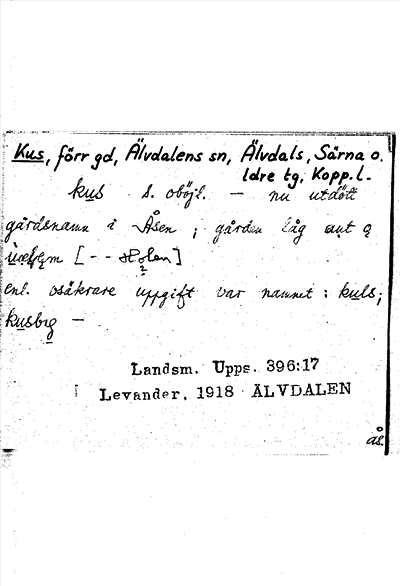 Kus, förr gd, Älvdalens sn, Älvdals, Särna o.
Idre tg, Kopp. l.
kus s. oböjl. — nu utdött
gårdsnamn i Åsen; gården låg aut o
[- - Holen]
enl. osäkrare uppgift var namnet: kuls;
kusbig —
Landsm. Upps. 396:17
Levander, 1918 ÄLVDALEN
ås.